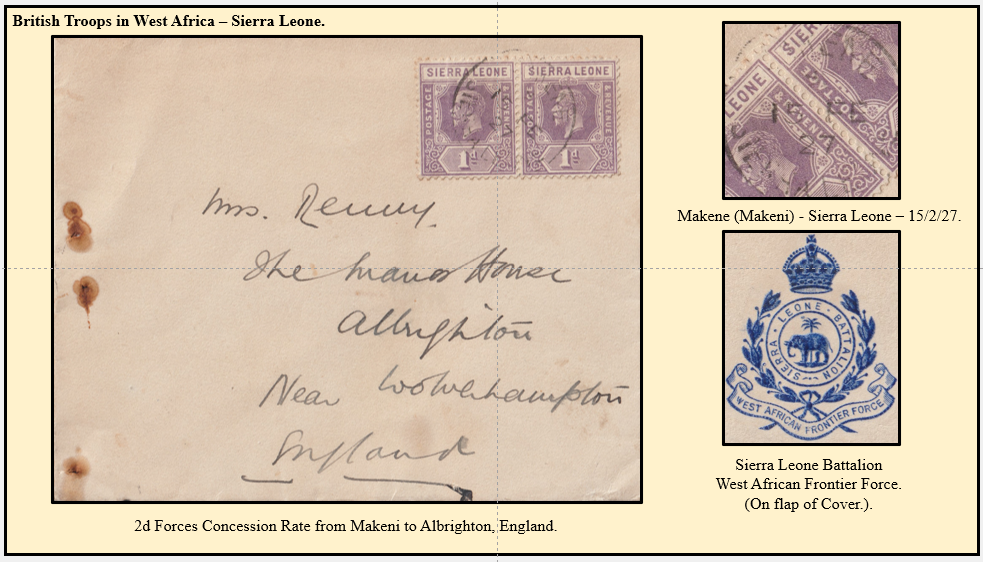 British Troops in West Africa – Sierra Leone.
SIERRA LEONE
POSTAGE
& REVENUE
1d
SIERRA LEONE
POSTAGE
& REVENUE
1d
Mrs. Renny.
The Manor House
Albrighton
Near Wolverhampton
England
2d Forces Concession Rate from Makeni to Albrighton, England.
LEONE
SIER
POSTAGE
Makene (Makeni) - Sierra Leone – 15/2/27.
SIERRA · LEONE · BATTALION
WEST AFRICAN FRONTIER FORCE
Sierra Leone Battalion
West African Frontier Force.
(On flap of Cover.).